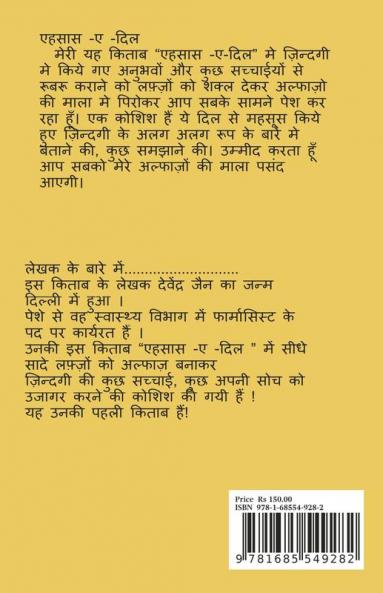 एहसास -ए -दिल
मेरी यह किताब “एहसास -ए-दिल” मे ज़िन्दगी
मे किये गए अनुभवों और कुछ सच्चाईयों से
रूबरू कराने को लफ़्ज़ों को शक्ल देकर अल्फाज़ो
की माला मे पिरोकर आप सबके सामने पेश कर
रहा हूँ। एक कोशिश हैं ये दिल से महसूस किये
हुए ज़िन्दगी के अलग अलग रूप के बारे मे
बताने की, कुछ समझाने की। उम्मीद करता हूँ
आप सबको मेरे अल्फाज़ों की माला पसंद
आएगी।
लेखक के बारे में............................
इस किताब के लेखक देवेंद्र जैन का जन्म
दिल्ली में हुआ ।
पेशे से वह स्वास्थ्य विभाग में फार्मासिस्ट के
पद पर कार्यरत हैं ।
उनकी इस किताब “एहसास -ए -दिल ” में सीधे
सादे लफ़्ज़ों को अल्फाज़ बनाकर
ज़िन्दगी की कुछ सच्चाई, कुछ अपनी सोच को
उजागर करने की कोशिश की गयी हैं !
यह उनकी पहली किताब हैं!
Price Rs 150.00
ISBN 978-1-68554-928-2
9 781685 549282